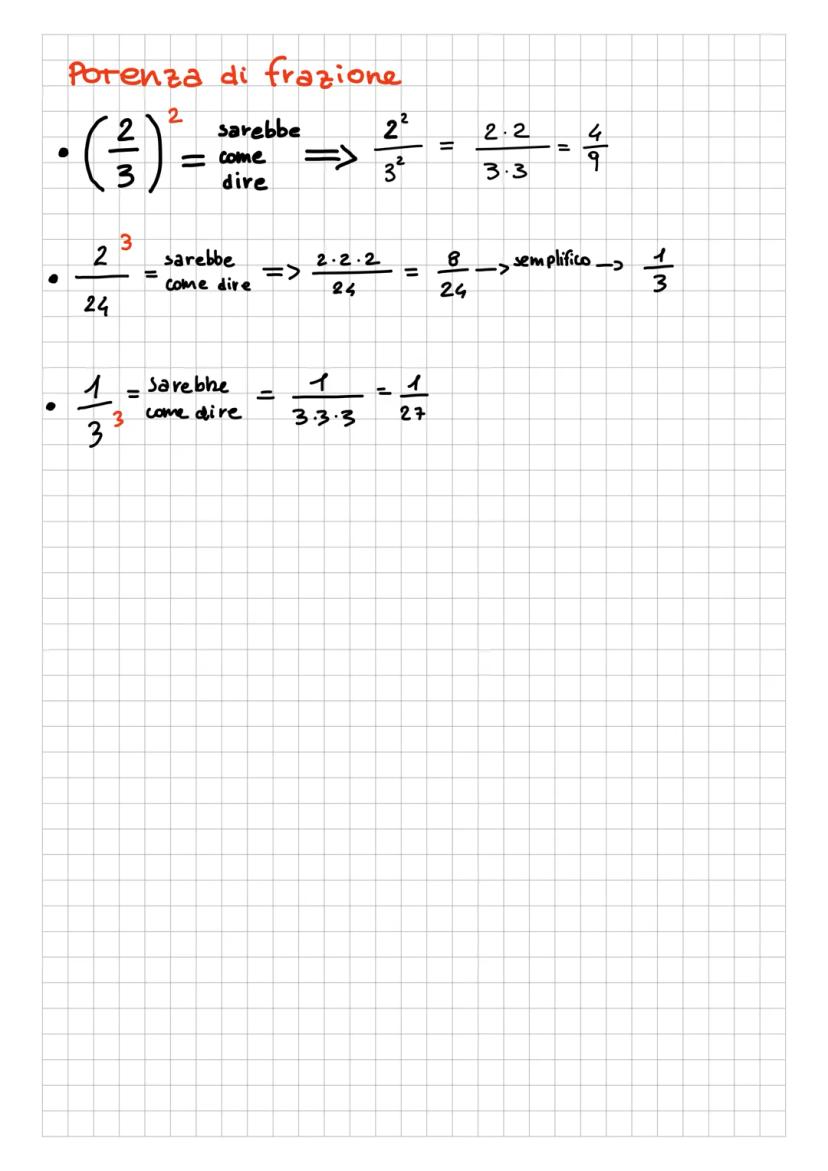 Potenza di frazione
• (2/3)² = sarebbe come dire => 2²/3² = 2·2/3·3 = 4/9
• 2³/24 = sarebbe come dire => 2·2·2/24 = 8/24 -> semplifico -> 1/3
• 1/3³ = sarebbe come dire = 1/3·3·3 = 1/27